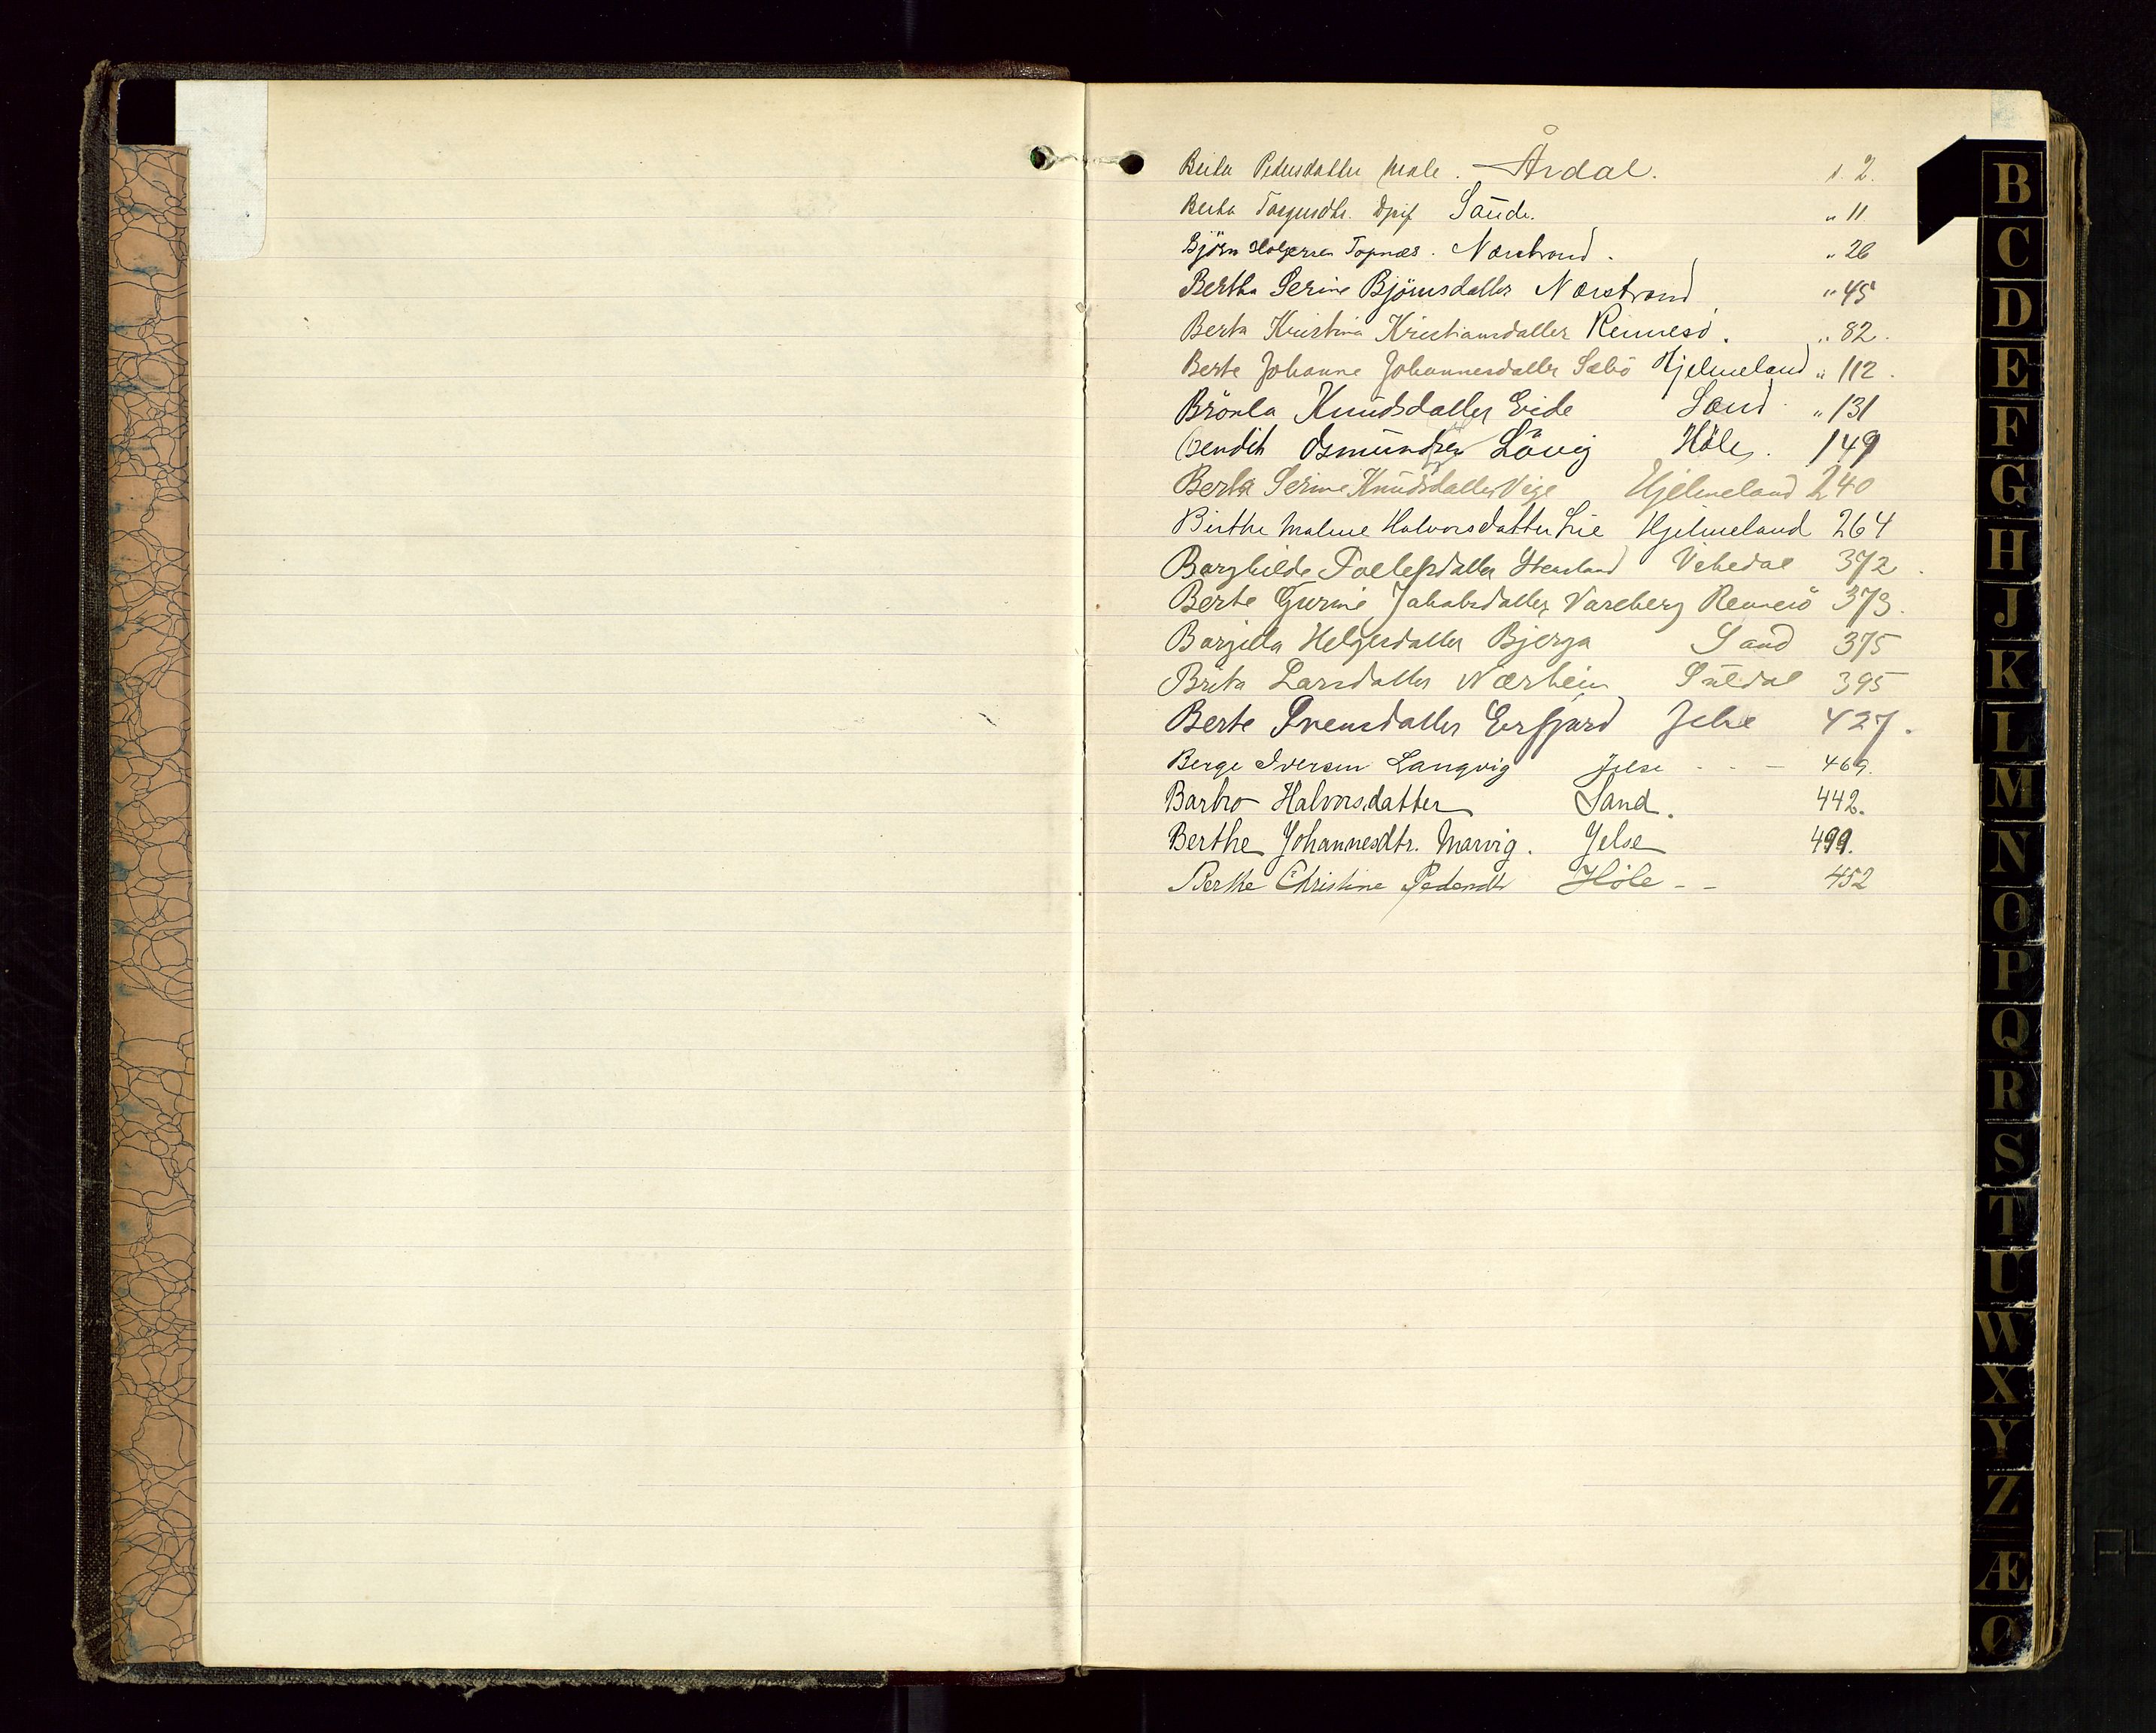 Berta Pedersdatter Male. Årdal. s. 2.
Berta Torgersdtr. Saude. " 11
Björn Holgersen Topnæs. Nærstrand. " 26
Bertha Serine Björnsdatter Nærstrand " 45
Berta Kristina Kristiansdatter Rennesö. " 82.
Berte Johanne Johannesdatter Sæbö Hjelmeland " 112.
Brönla Knudsdatter Eide Sand " 131
Bendik Osmundsen Lövig Höle. 149
Berta Serine Knudsdatter Vige Hjelmeland 240
Birthe Malene Halvorsdatter Lie Hjelmeland 264
Borghilde Tollefsdatter Stensland Vikedal 372.
Berte Gurine Jakobsdatter Vareberg Rennesö 373.
Borgilla Helgesdatter Bjerga Sand 375
Brita Larsdatter Nærheim Suldal 395
Berte Svensdatter Erfjord Jelse 427.
Berge Iversen Langvig Jelse - - - 469.
Barbro Halvorsdatter Sand. 442.
Berthe Johannesdtr. Marvig. Jelse 499.
Berthe Christine Pedersdtr Höle - - 452
B
C
D
E
F
G
H
J
K
L
M
N
O
P
Q
R
S
T
U
W
X
Y
Z
Æ
Ø